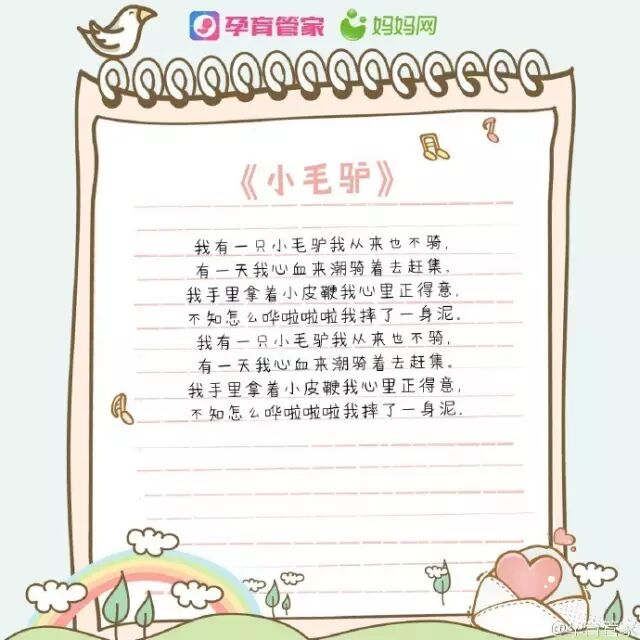 孕育管家 妈妈网
《小毛驴》
我有一只小毛驴我从来也不骑,
有一天我心血来潮骑着去赶集。
我手里拿着小皮鞭我心里正得意,
不知怎么哗啦啦啦我摔了一身泥。
我有一只小毛驴我从来也不骑,
有一天我心血来潮骑着去赶集。
我手里拿着小皮鞭我心里正得意,
不知怎么哗啦啦啦我摔了一身泥。